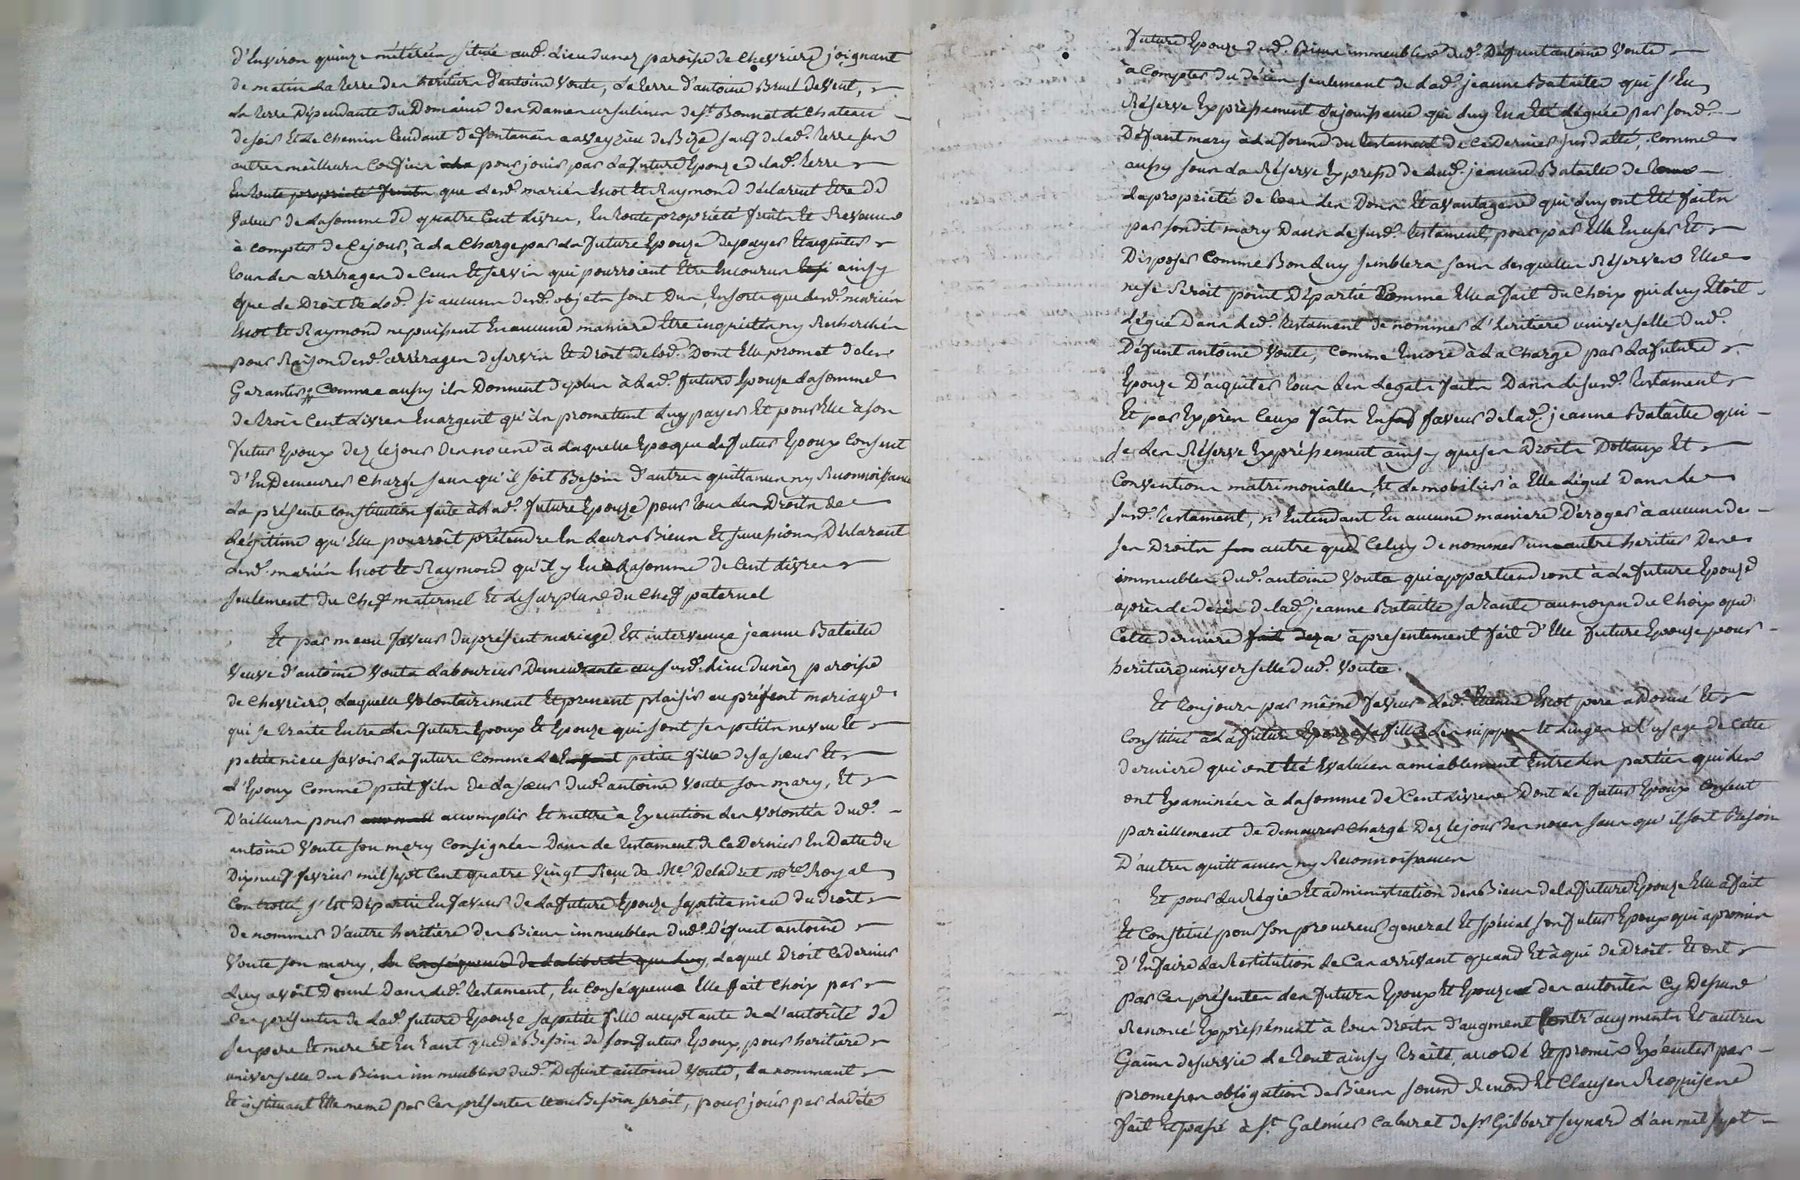 d'Environ quinze méterée située aud. Lieu dunez paroisse de Chevriere joignant
de matin la terre des heritiers d'antoine Voute, la terre d'antoine Bruel de Vent,
la terre Dépendante du Domaine des Dames ursulines de st. Bonnet de Chateau
de soir Et le Chemin tendant de fontenair a aveyzieu de Bize sauf de lad. terre ses
autres meilleurs Confins pour jouir par la future Epouze de lad. terre
En toute propriété fruits que lesd. mariés Escot Et Raymond déclarent Etre de
Valeur de la somme de quatre Cent livres, En toute propriété fruits Et Revenus
à compter de Ce jour, à la Charge par la future Epouze de payer Et aquiter
tous les arrérages de Cens Et servis qui pourroient Etre Encourus ainsy
que de Droit de Lod. si aucuns desd. objets sont dus En sorte que lesd. mariés
Escot Et Raymond ne puissent En aucune maniere Etre inquiettés ny Recherchés
pour Raison desd. arrérages de servis Et droit de lod. Dont Elle promet de les
Garantir, Comme aussy ils Donnent de plus à lad. future Epouze la somme
de trois Cent livres En argent qu'ils promettent luy payer Et pour Elle à son
futur Epoux dez le jour des noces à laquelle Epoque le futur Epoux Consent
d'En Demeurer Chargé sans qu'il soit Besoin d'autres quittances ny Reconnoissance
La présente Constitution faite à lad. future Epouze pour tous les Droits de
Légitime qu'Elle pourroit prétendre En leurs Biens Et successions Déclarant
lesd. mariés Escot Et Raymond qu'il y En a la somme de Cent livres
seulement du Cheff maternel Et le surplus du Cheff paternel
Et par meme faveur du présent mariage Est intervenue jeanne Bataille
Veuve d'antoine Voute Laboureur Demeurante au susd. Lieu dunez paroisse
de Chevriere, Laquelle Volontairement Et prenant plaisir au présent mariage
qui se traite Entre les futurs Epoux Et Epouze qui sont ses petits neveu Et
petite niece savoir La future Comme petite fille de sa sœur Et
L'Epoux Comme petit fils de la sœur dud. antoine Voute son mary, Et
D'ailleurs pour accomplir Et mettre à Execution les Volontés dud.
antoine Voute son mary Consignées Dans le testament de Ce Dernier En Datte du
Dixneuf fevrier mil sept Cent quatre Vingt Reçu de Me. Deladret nore. Royal
Controllé s'Est Départie En faveur de La future Epouze sa petite niece du Droit
de nommer d'autre heritiere des Biens immeubles dud. Défunt antoine
Voute son mary, En Conséquence de la liberté que luy, Lequel Droit Ce dernier
Luy avoit Donné Dans led. testament, En Conséquence Elle fait Choix par
Ces présentes de Lad. future Epouze sa petite fille acceptante de L'autorité de
ses pere Et mere Et En tant que de Besoin de son futur Epoux, pour heritiere
universelle des Biens immeubles dud. Défunt antoine Voute, La nommant
Et instituant Elle meme par Ces présentes Besoin seroit, pour jouir par La dite
future Epouze desd. Biens immeubles dud. Défunt antoine Voute
à Compter du décès seulement de lad. jeanne Bataille qui s'En
Réserve Expressement la jouissance qui luy En a Eté Léguée par sond.
Défunt mary à la forme du testament de Ce dernier susdatté, Comme
aussy sous la Réserve Expresse de lad. jeanne Bataille de
La propriété de tous les Dons Et avantages qui luy ont Eté faits
par sondit mary Dans le susd. testament pour par Elle En user Et
Disposer Comme Bon Luy semblera sans lesquelles Réserves Elle
ne se seroit point Départie Comme Elle a fait du Choix qui luy Etoit
Légué Dans Led. testament de nommer L'heritiere universelle dud.
Défunt antoine Voute, Comme Encore à La Charge par La future
Epouze D'aquiter tous les Legats faits Dans le susd. testament
Et par Exprès Ceux faits En faveur de lad. jeanne Bataille qui
se les Réserve Expréssement ainsy que ses Droits Dottaux Et
Conventions matrimonialles, Et le mobilier à Elle Légué Dans Le
susd. testament, n'Entendant En aucune maniere Déroger à aucun de
ses Droits autre que Celuy de nommer un autre heritier Des
immeubles dud. antoine Voute qui appartiendront à La future Epouze
après le décès de lad. jeanne Bataille sa tante au moyen du Choix que
Cette derniere à présentement fait d'Elle future Epouze pour
heritiere universelle dud. Voute.
Et toujours par même faveur Led. Etienne Escot pere a Donné Et
Constitué à La future Epouze sa fille les nippes Et Linges à l'usage de Cette
derniere qui ont Eté Evaluées amiablement Entre les parties qui les
ont Examinées à La somme de Cent livres Dont Le futur Epoux Consent
pareillement de demeurer Chargé Dez le jour des noces sans qu'il soit Besoin
D'autres quittances ny Reconnoissances
Et pour La Régie Et administration des Biens de la future Epouze Elle a fait
Et Constitué pour son procureur general Et spécial son futur Epoux qui a promis
d'En faire La Restitution le Cas arrivant quand Et à qui de Droit. Et ont
par Ces présentes les futurs Epoux Et Epouze des autorités Cy Dessus
Renoncé Expressément à tous droits d'augment Contr'augments Et autres
Gains de survie Le tout ainsy traité accordé Et promis Exécuter par
promesses obligation de Biens soumis Renon. Et Clauses Requises
fait Et passé à St. Galmier Cabaret de sr. Gilbert Seynard L'an mil sept